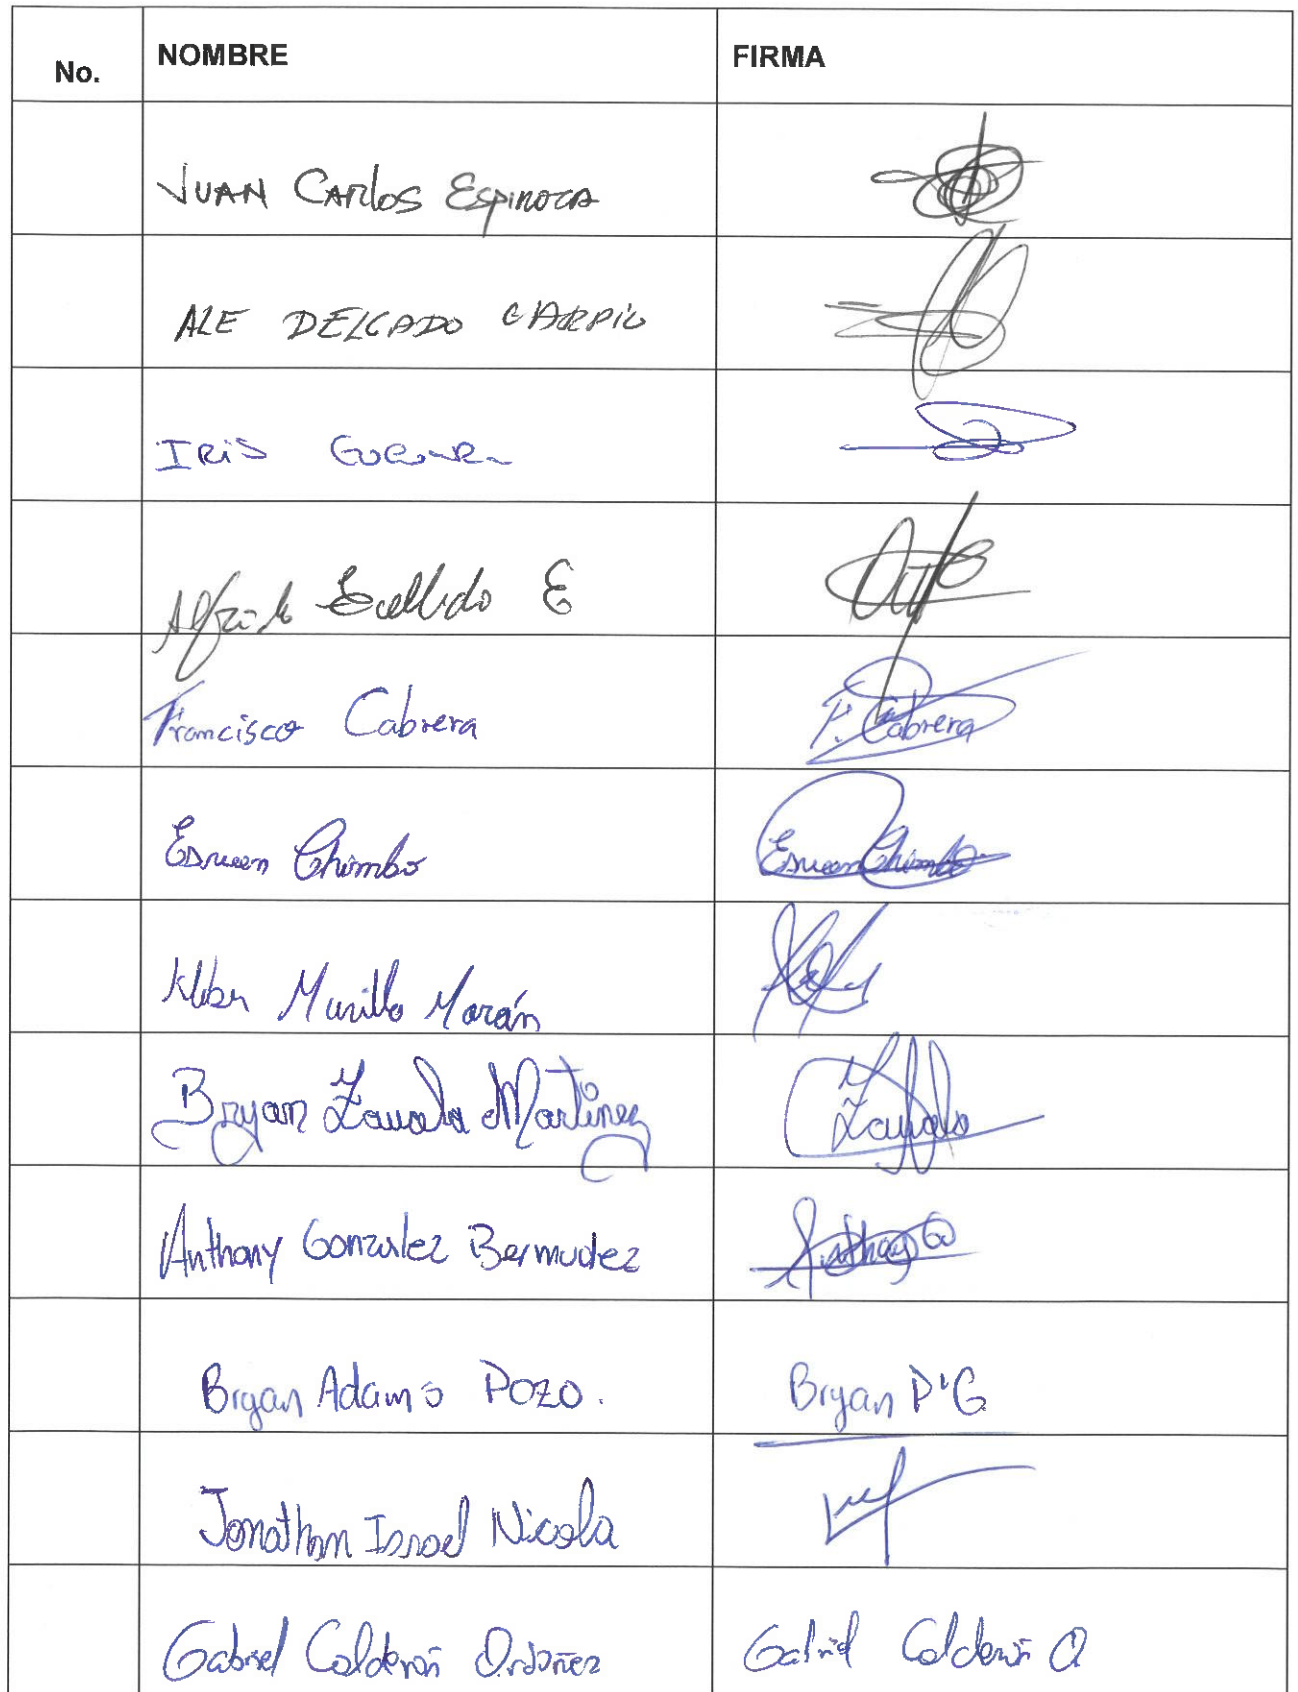 No. NOMBRE FIRMA
JUAN CARlos Espinoza
ALE DELGADO CARPIO
IRiS
Alfredo E
Francisco Cabrera F. Cabrera
Chimbo Chimbo
Kleber Murillo Morán
Bryan Zavala Martinez Zavala
Anthony Gonzalez Bermudez Anthony G
Bryan Adams POZO. Bryan P'G
Jonathan Israel Nicola
Gabriel Calderón Ordoñez Gabriel Calderón O